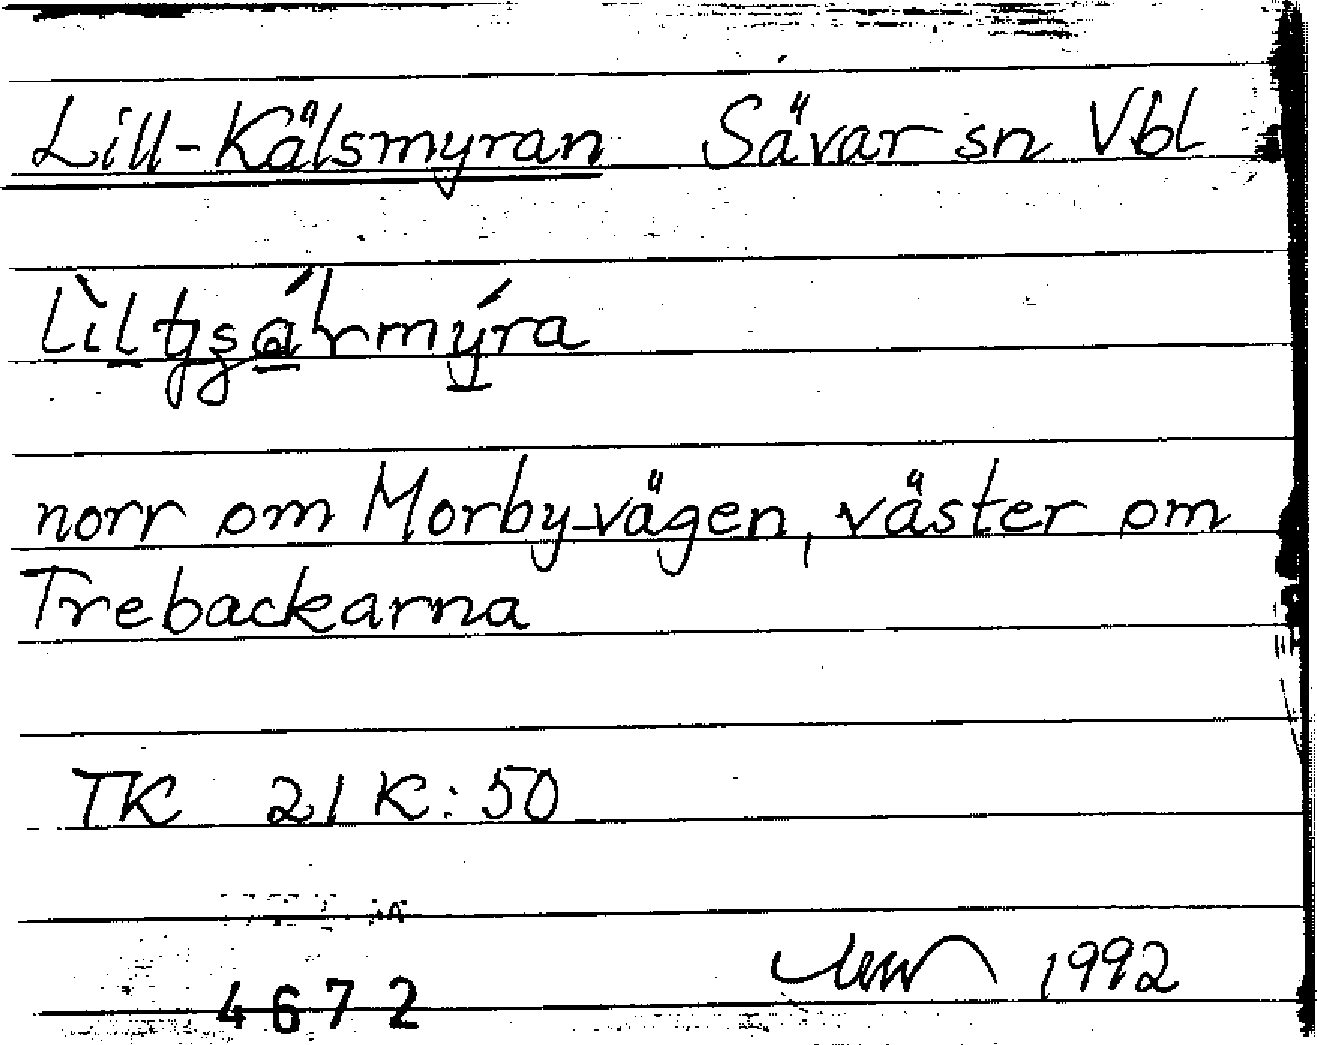 Lill-Kälsmyran Sävar sn Vbl
norr om Morbyvägen, väster om
Trebackarna
TK 21 K:50
1992
4672